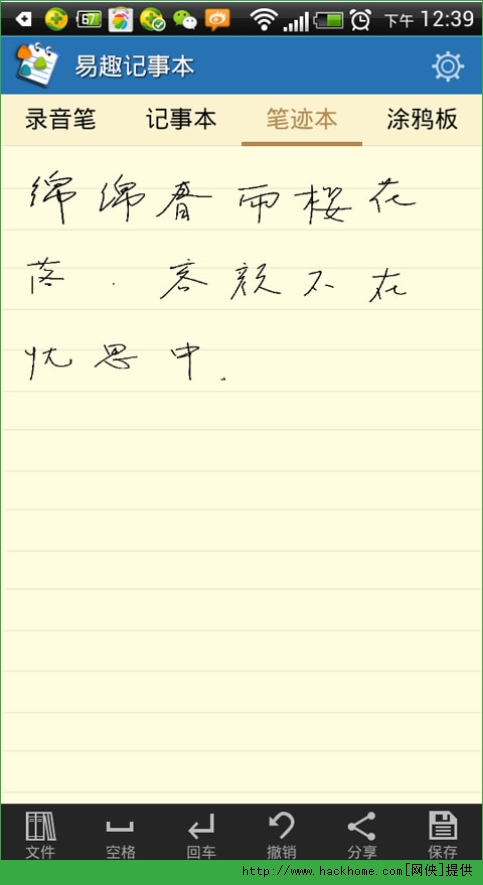 67 下午 12:39
易趣记事本
录音笔 记事本 笔迹本 涂鸦板
绵绵春雨樱花
落.容颜不在
忧思中.
文件 空格 回车 撤销 分享 保存
http://www.hackhome.com[网侠]提供